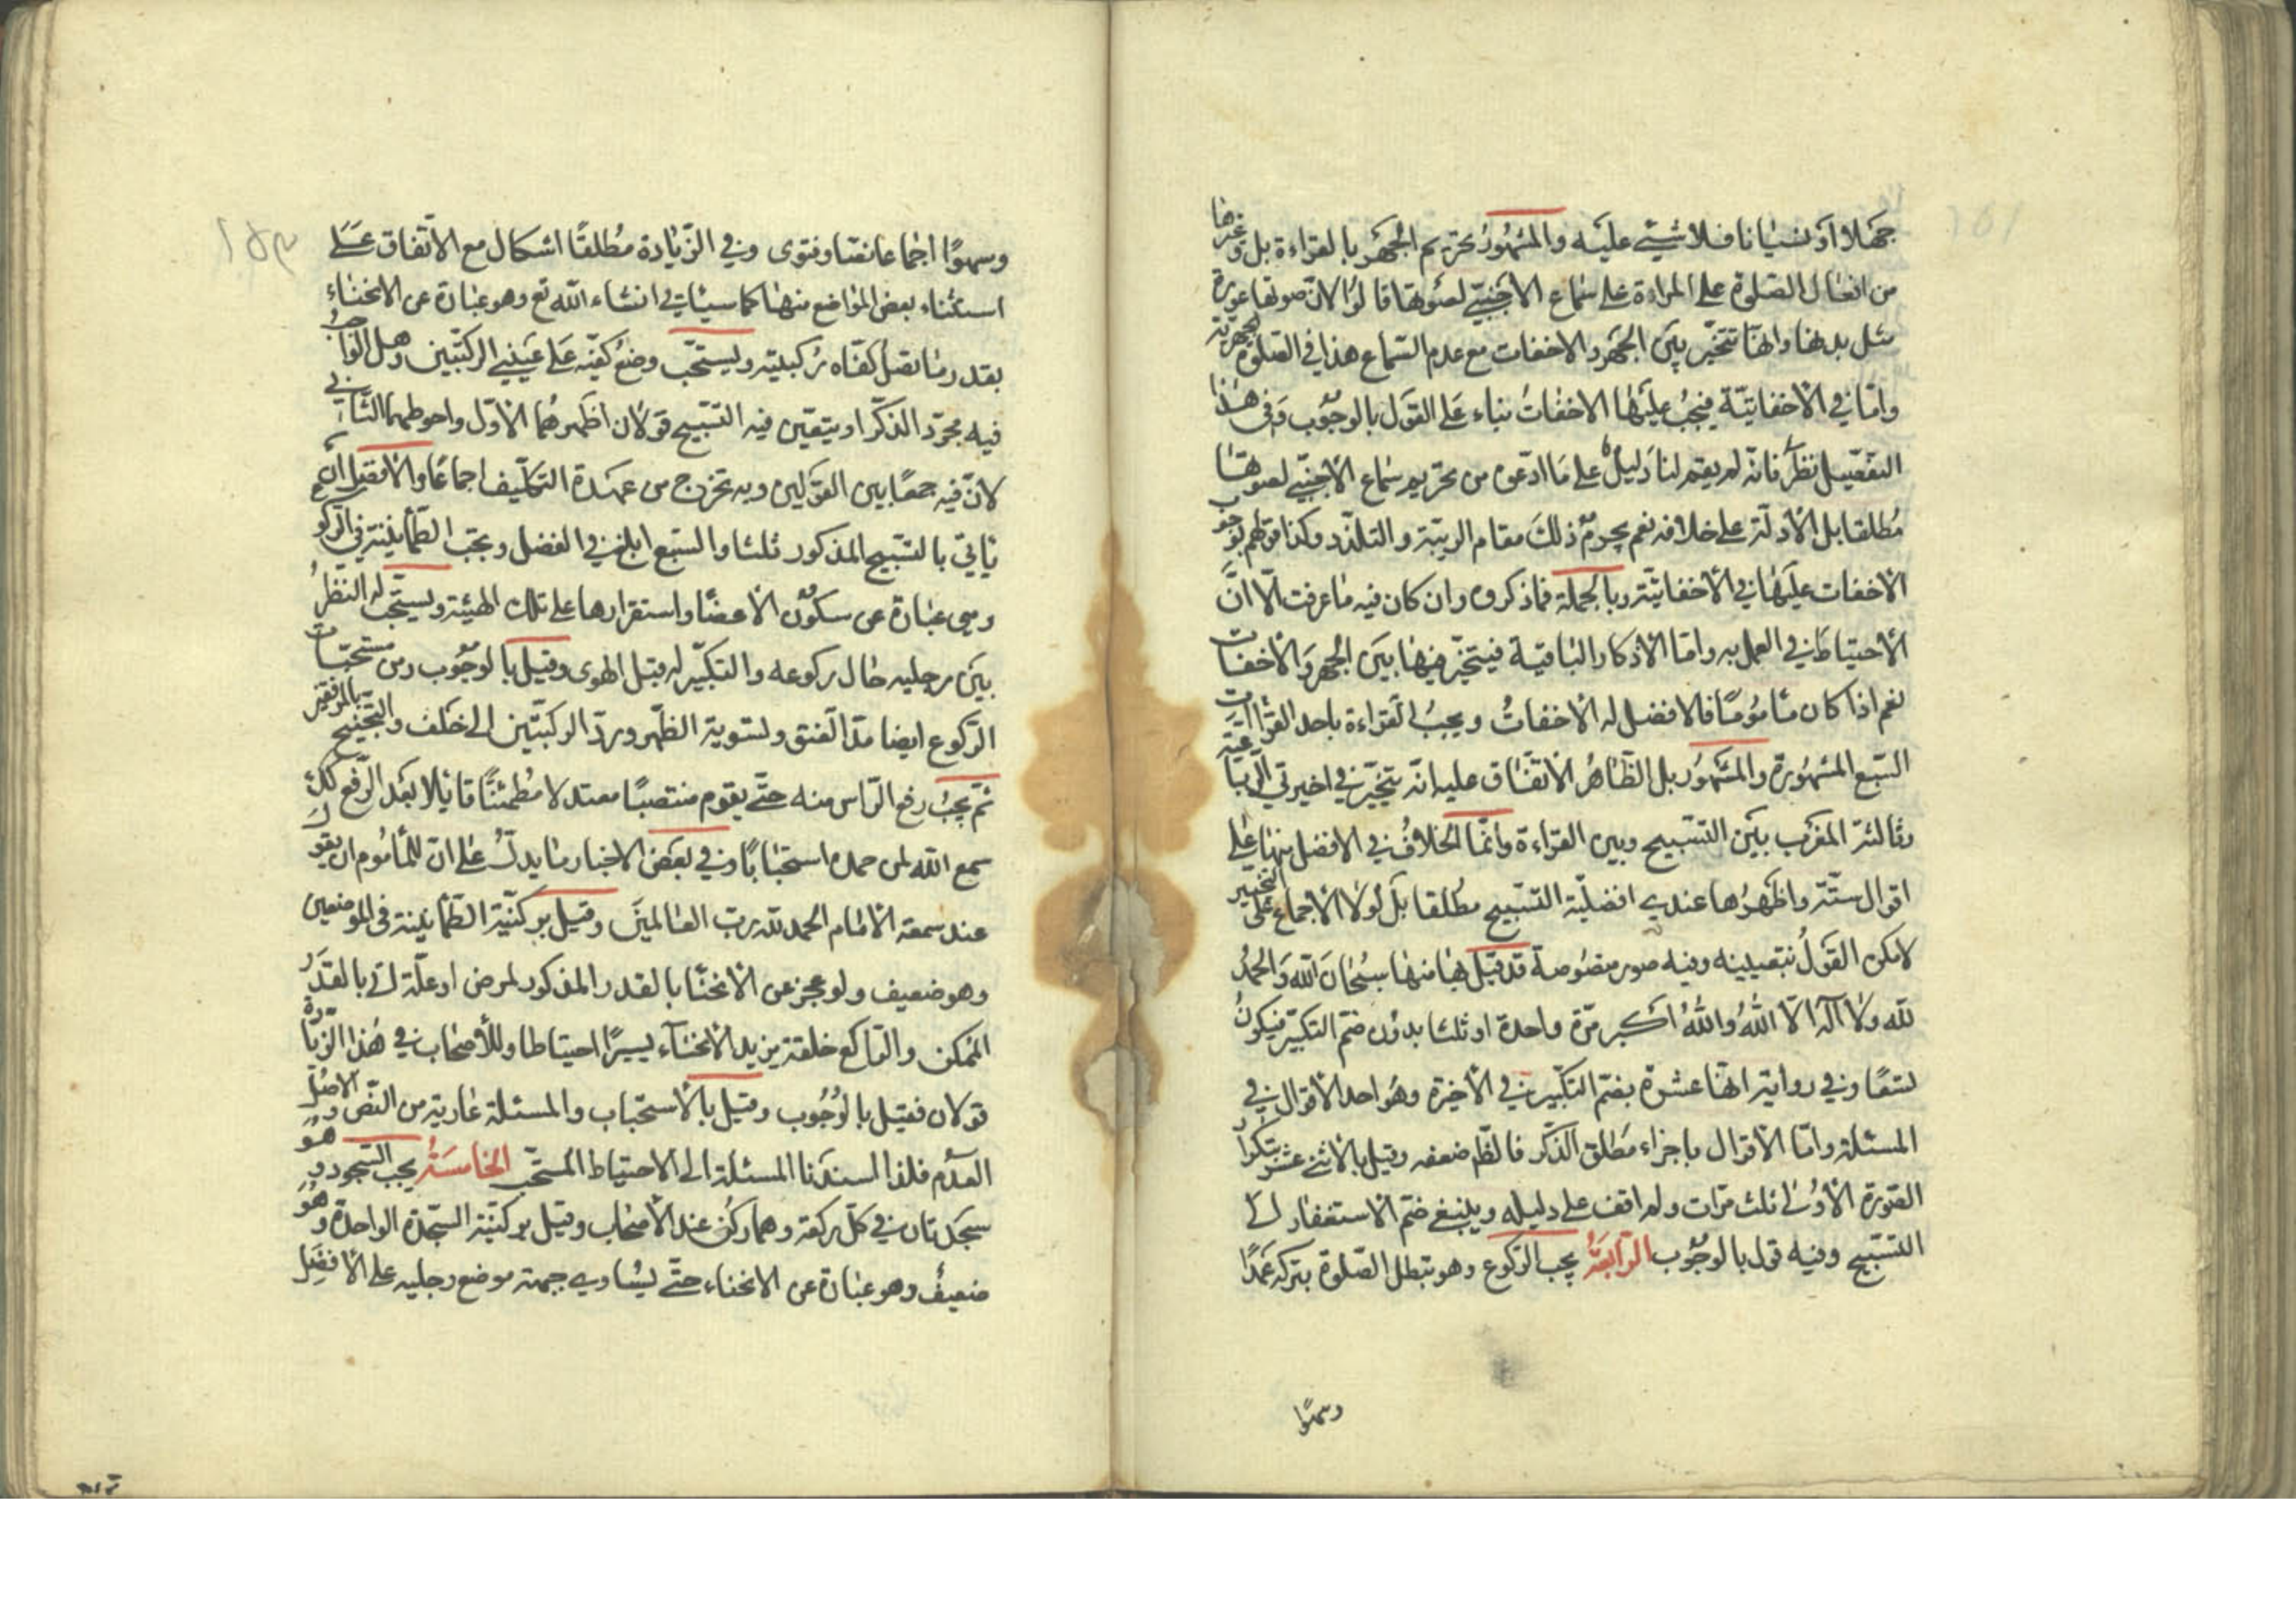 جهلا او نسيانا فلا شيئ عليه والمشهور تحريم الجهر بالقراءة بل وغيرها
من افعال الصلوة على المراءة على سماع الاجنبيّ لصوتها قالوا لانّ صوتها عورة
مثل بدنها وانها تتخيّر بين الجهر والاخفات مع عدم السماع هذا في الصلوة الجهرية
وامّا في الاخفاتيّة فيجب عليها الاخفات بناء على القول بالوجوب وفي هذا
التفصيل نظر فانّه لم يقم لنا دليل على ما ادّعوه من تحريم سماع الاجنبيّ لصوتها
مطلقا بل الأدلّة على خلافه نعم يحرم ذلك مقام الريبة والتلذّذ وكذا قولهم بوجوب
الاخفات عليها في الأخفاتيّة وبالجملة فما ذكروه وان كان فيه ما عرفت الّا انّ
الأحتياط في العمل به وامّا الأذكار الباقية فيتخيّر فيها بين الجهر والأخفات
نعم اذا كان مأمومًا فالافضل له الأخفات ويجب القراءة باحد القراآت
السّبع المشهورة والمشهور بل الظّاهر الأتّفاق عليه انّه يتخيّر في اخيرتي الرباعيّة
وثالثة المغرب بين التسبيح وبين القراءة وانّما الخلاف في الافضل منها على
اقوال ستّة واظهرها عندي افضليّة التسبيح مطلقا بل لولا الأجماع على التخيير
لامكن القول بتعيينه وفيه صور منصوصة قد قيل بها منها سبحان الله والحمد
لله ولا اله الّا الله والله اكبر مرّة واحدة او ثلثا بدون ضمّ التكبير فيكون
تسعًا وفي رواية انّها عشرة بضمّ التكبير في الأخيرة وهو احد الأقوال في
المسئلة وامّا الأقوال باجزاء مطلق الذّكر فالظّاهر ضعفه وقيل بالأثني عشر بتكرار
الصّورة الأولى ثلث مرّات ولم اقف على دليله وينبغي ضمّ الأستغفار الى
التسبيح وفيه قول بالوجوب الرّابعة يجب الرّكوع وهو تبطل الصّلوة بتركه عمدًا
وسهوًا
وسهوًا اجماعا نصّا وفتوى وفي الزّيادة مطلقًا اشكال مع الاتّفاق على
استثناء بعض المواضع منها كما سيأتي انشاء الله تع وهو عبارة عن الانحناء
بقدر ما تصل كفّاه ركبتيه ويستحبّ وضع كفّيه على عيني الركبتين وهل الواجب
فيه مجرّد الذّكر او يتعيّن فيه التسبيح قولان اظهرهما الأوّل واحوطهما الثّاني
لانّ فيه جمعًا بين القولين وبه يخرج من عهدة التكليف اجماعًا والأفضل ان
يأتي بالتسبيح المذكور ثلثا والسّبع ابلغ في الفضل ويجب الطّمأنينة في الركوع
وهي عبارة عن سكون الأعضاء واستقرارها على تلك الهيئة ويستحبّ له النّظر
بين رجليه حال ركوعه والتكبير له قبل الهوى وقيل بالوجوب ومن مستحبّات
الرّكوع ايضا مدّ العنق وتسوية الظّهر وردّ الركبتين الى خلف والتجنيح بالمرفقين
ثمّ يجب رفع الرّاس منه حتّى يقوم منتصبًا معتدلا مطمئنًّا قايلا بعد الرّفع كذلك
سمع الله لمن حمده استحبابًا وفي بعض الاخبار ما يدلّ على انّ للمأموم ان يقول
عند سمعة الأمام الحمد لله ربّ العالمين وقيل بركنيّة الطّمأنينة في الموضعين
وهو ضعيف ولو عجز عن الأنحناء بالقدر المذكور لمرض او علّة اتى بالقدر
الممكن والرّاكع خلقة يزيد الأنحناء يسيرًا احتياطا وللأصحاب في هذا الزّيادة
قولان فقيل بالوجوب وقيل بالأستحباب والمسئلة عارية من النّصّ والاصل
العدم فلذا اسندنا المسئلة الى الاحتياط المستحبّ الخامسة يجب السّجود وهو
سجدتان في كلّ ركعة وهما ركن عند الأصحاب وقيل بركنيّة السّجدة الواحدة وهو
ضعيف وهو عبارة عن الانحناء حتّى يساوي جبهته موضع رجليه على الأفضل